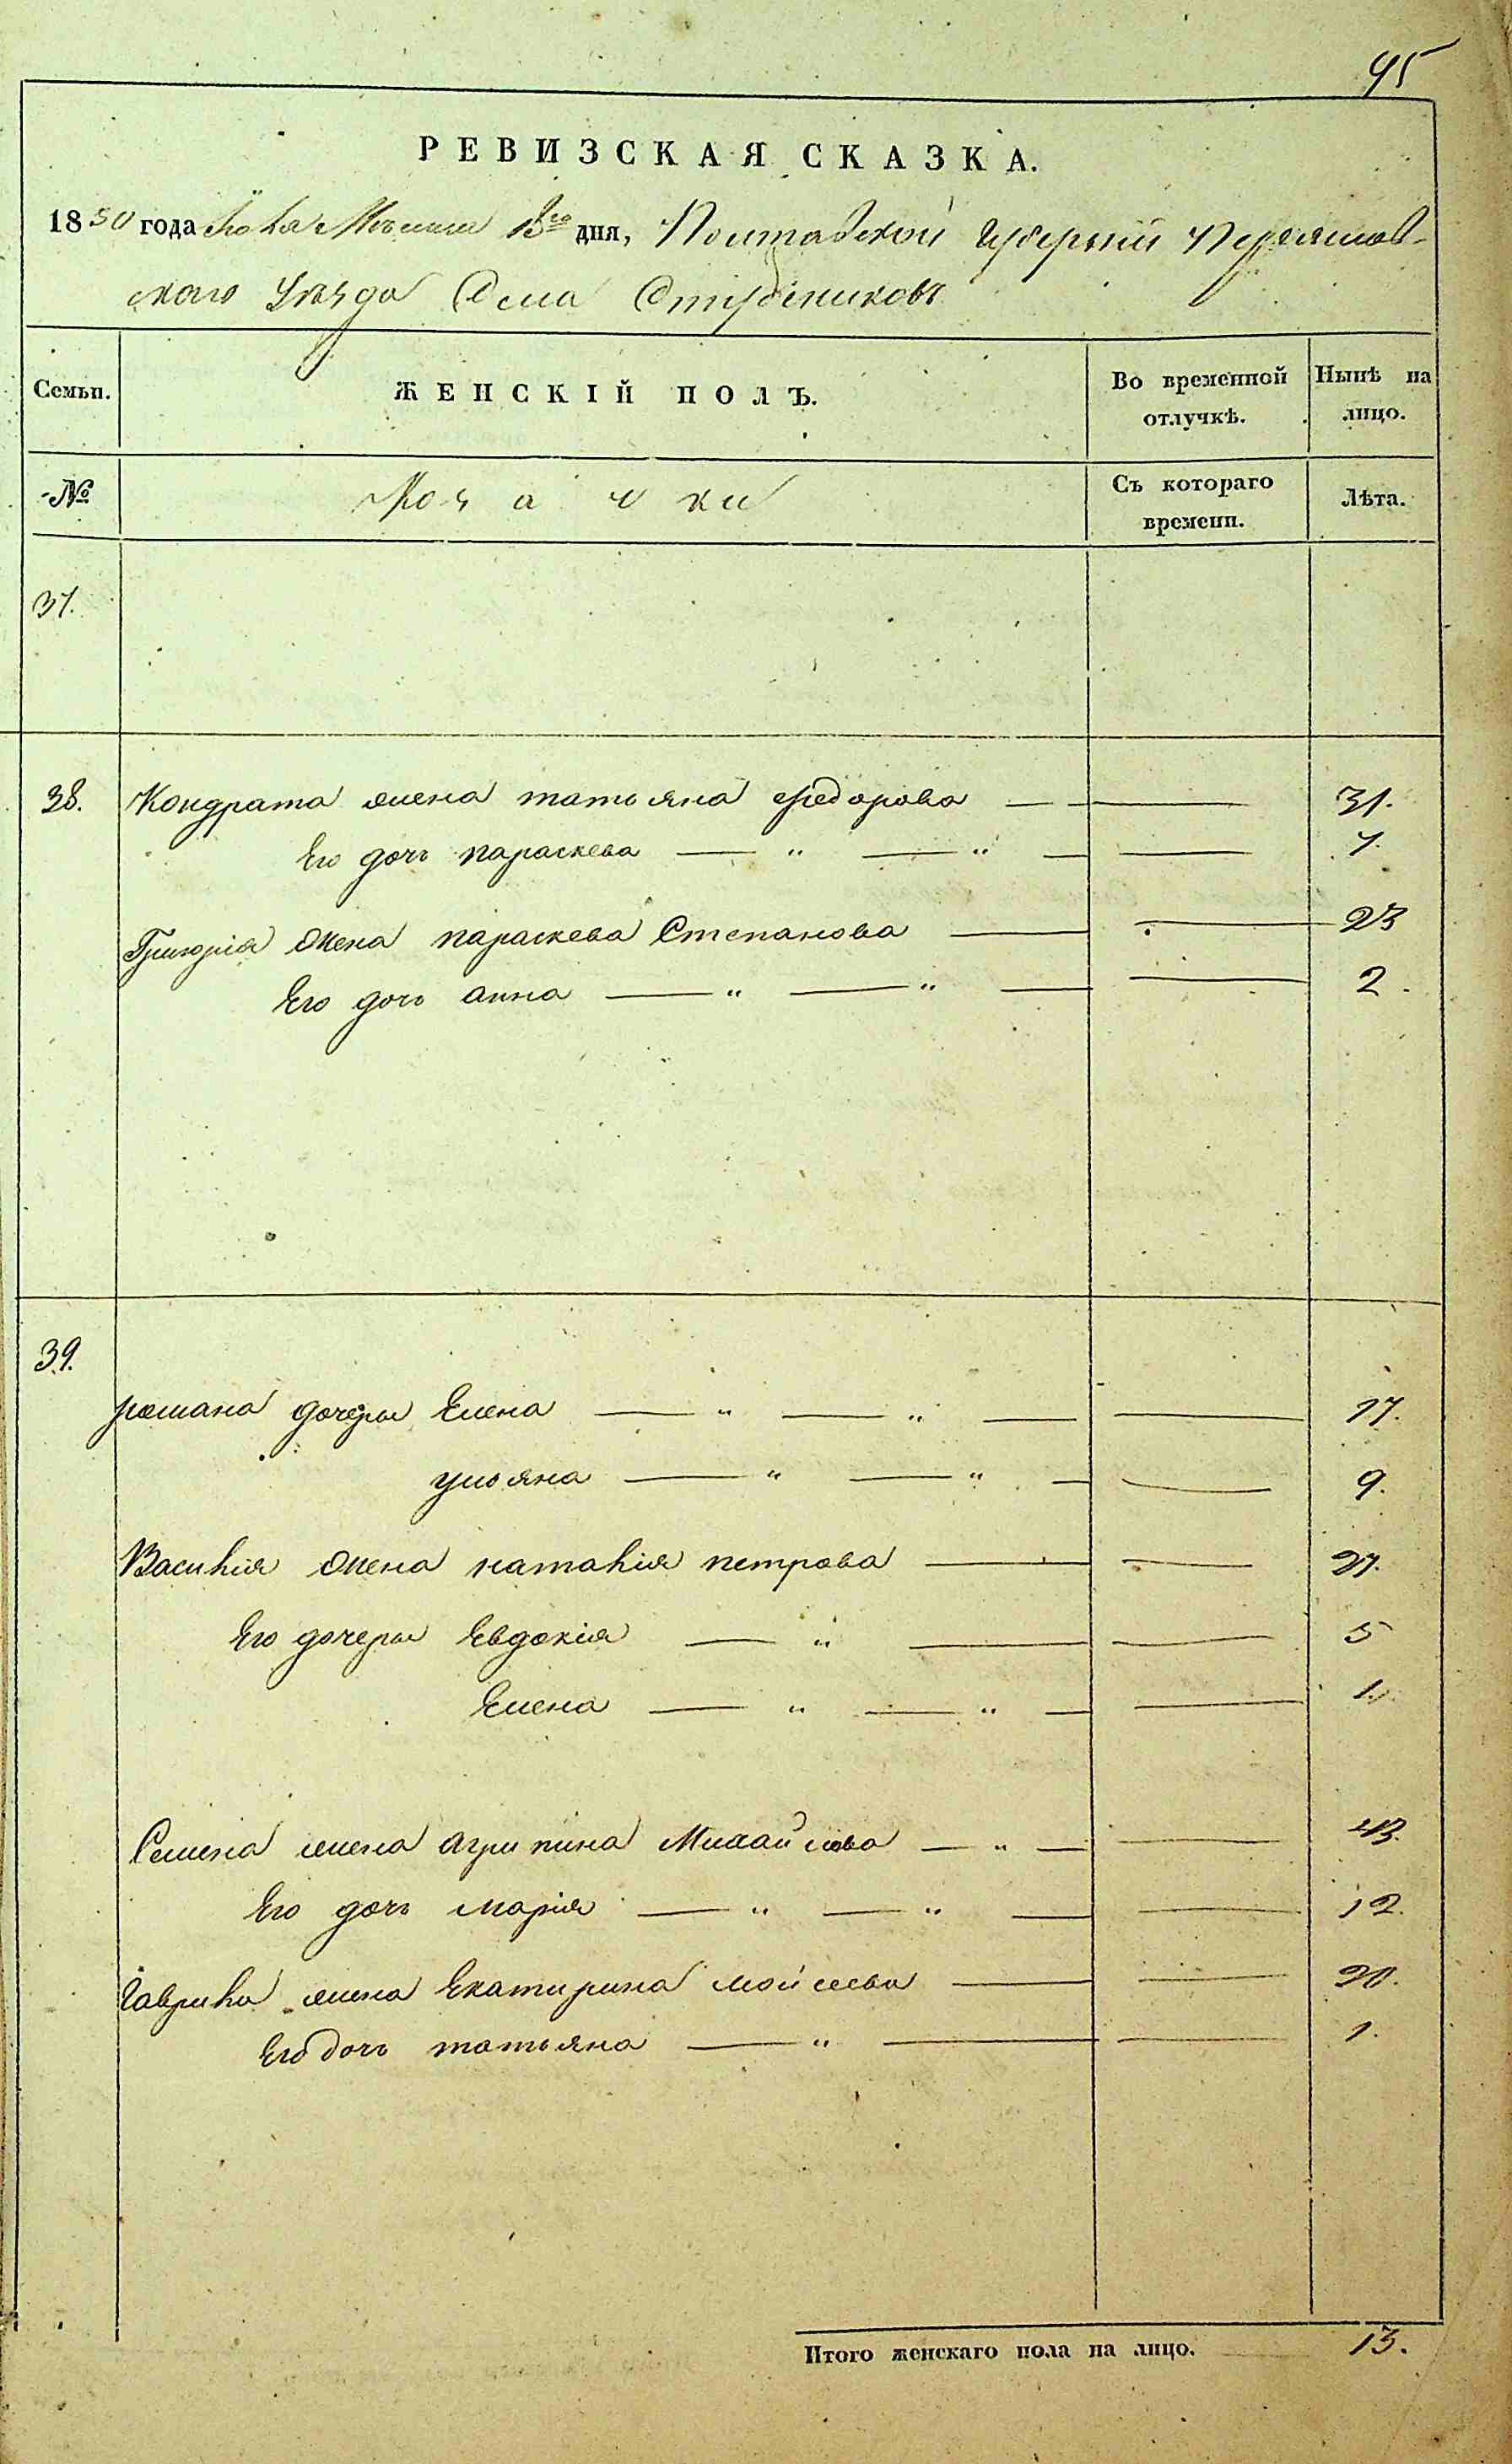 95
РЕВИЗСКАЯ СКАЗКА.
1850 года Іюля Месяца 13го дня, Полтавской Губерніи Переяслов-
скаго Уезда Села Студениковъ
Семьи. ЖЕНСКІЙ ПОЛЪ. Во временной отлучкѣ. Нынѣ на лицо.
№ Козачки Съ котораго времени. Лѣта.
37.
38. Кондрата жена татьяна федорова — — 31.
Его дочь параскева — " — " — — 7.
Григорія жена параскева Степанова — — 23
Его дочь анна — " — " — — 2.
39.
романа дочеры Елена — " — " — — 17.
ульяна — " — " — — 9.
Василія жена наталія петрова — — 27.
Его дочеры Евдокія — " — — 5
Елена — " — " — — 1.
Семена жена агрипина Михайлова — " — — 43.
Его дочь марія — " — " — — 12.
Гаврила жена Екатирина мойсеева — — 20.
Его дочь татьяна — " — — 1.
Итого женскаго пола на лицо. 13.